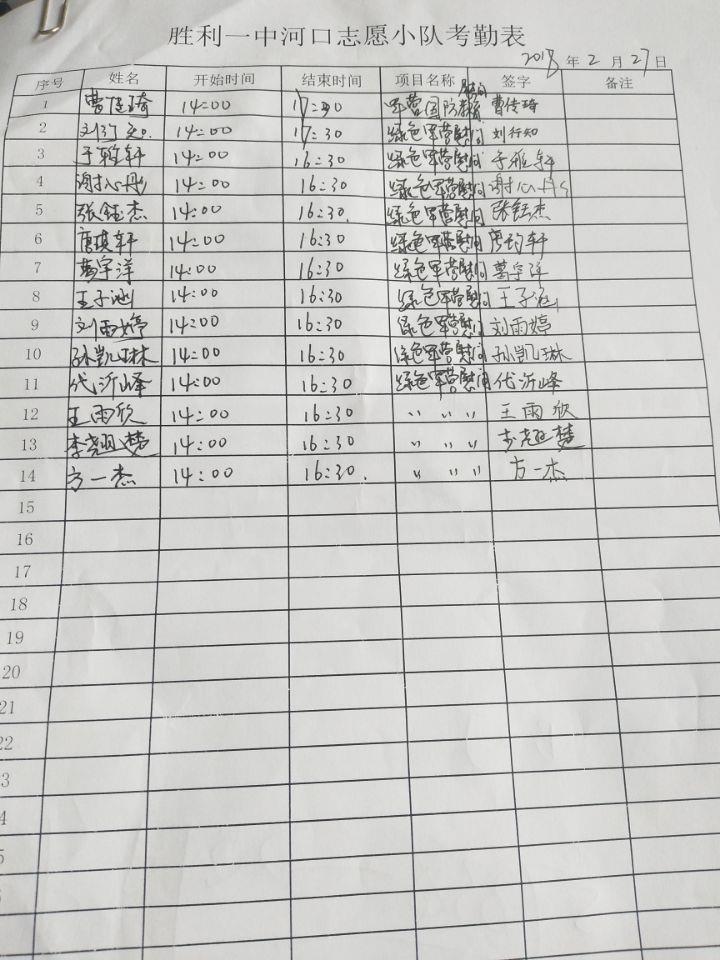 胜利一中河口志愿小队考勤表
2018年2月27日
序号 姓名 开始时间 结束时间 项目名称 签字 备注
慰问
1 曹传琦 14:00 17:30 军营国防教育 曹传琦
2 刘行知 14:00 17:30 绿色军营慰问 刘行知
3 于雅轩 14:00 16:30 绿色军营慰问 于雅轩
4 谢心丹 14:00 16:30 绿色军营慰问 谢心丹
5 张钰杰 14:00 16:30. 绿色军营慰问 张钰杰
6 14:00 16:30 绿色军营慰问
7 葛宇洋 14:00 16:30 绿色军营慰问 葛宇洋
8 王子涵 14:00 16:30 绿色军营慰问 王子涵
9 刘雨婷 14:00 16:30 绿色军营慰问 刘雨婷
10 孙凯琳 14:00 16:30 绿色军营慰问 孙凯琳
11 代沂峰 14:00 16:30 绿色军营慰问 代沂峰
12 王雨欣 14:00 16:30 〃 〃 〃 王雨欣
13 14:00 16:30 〃 〃 〃
14 方一杰 14:00 16:30. 〃 〃 〃 方一杰
15
16
17
18
19
20
21
22
3
4
5